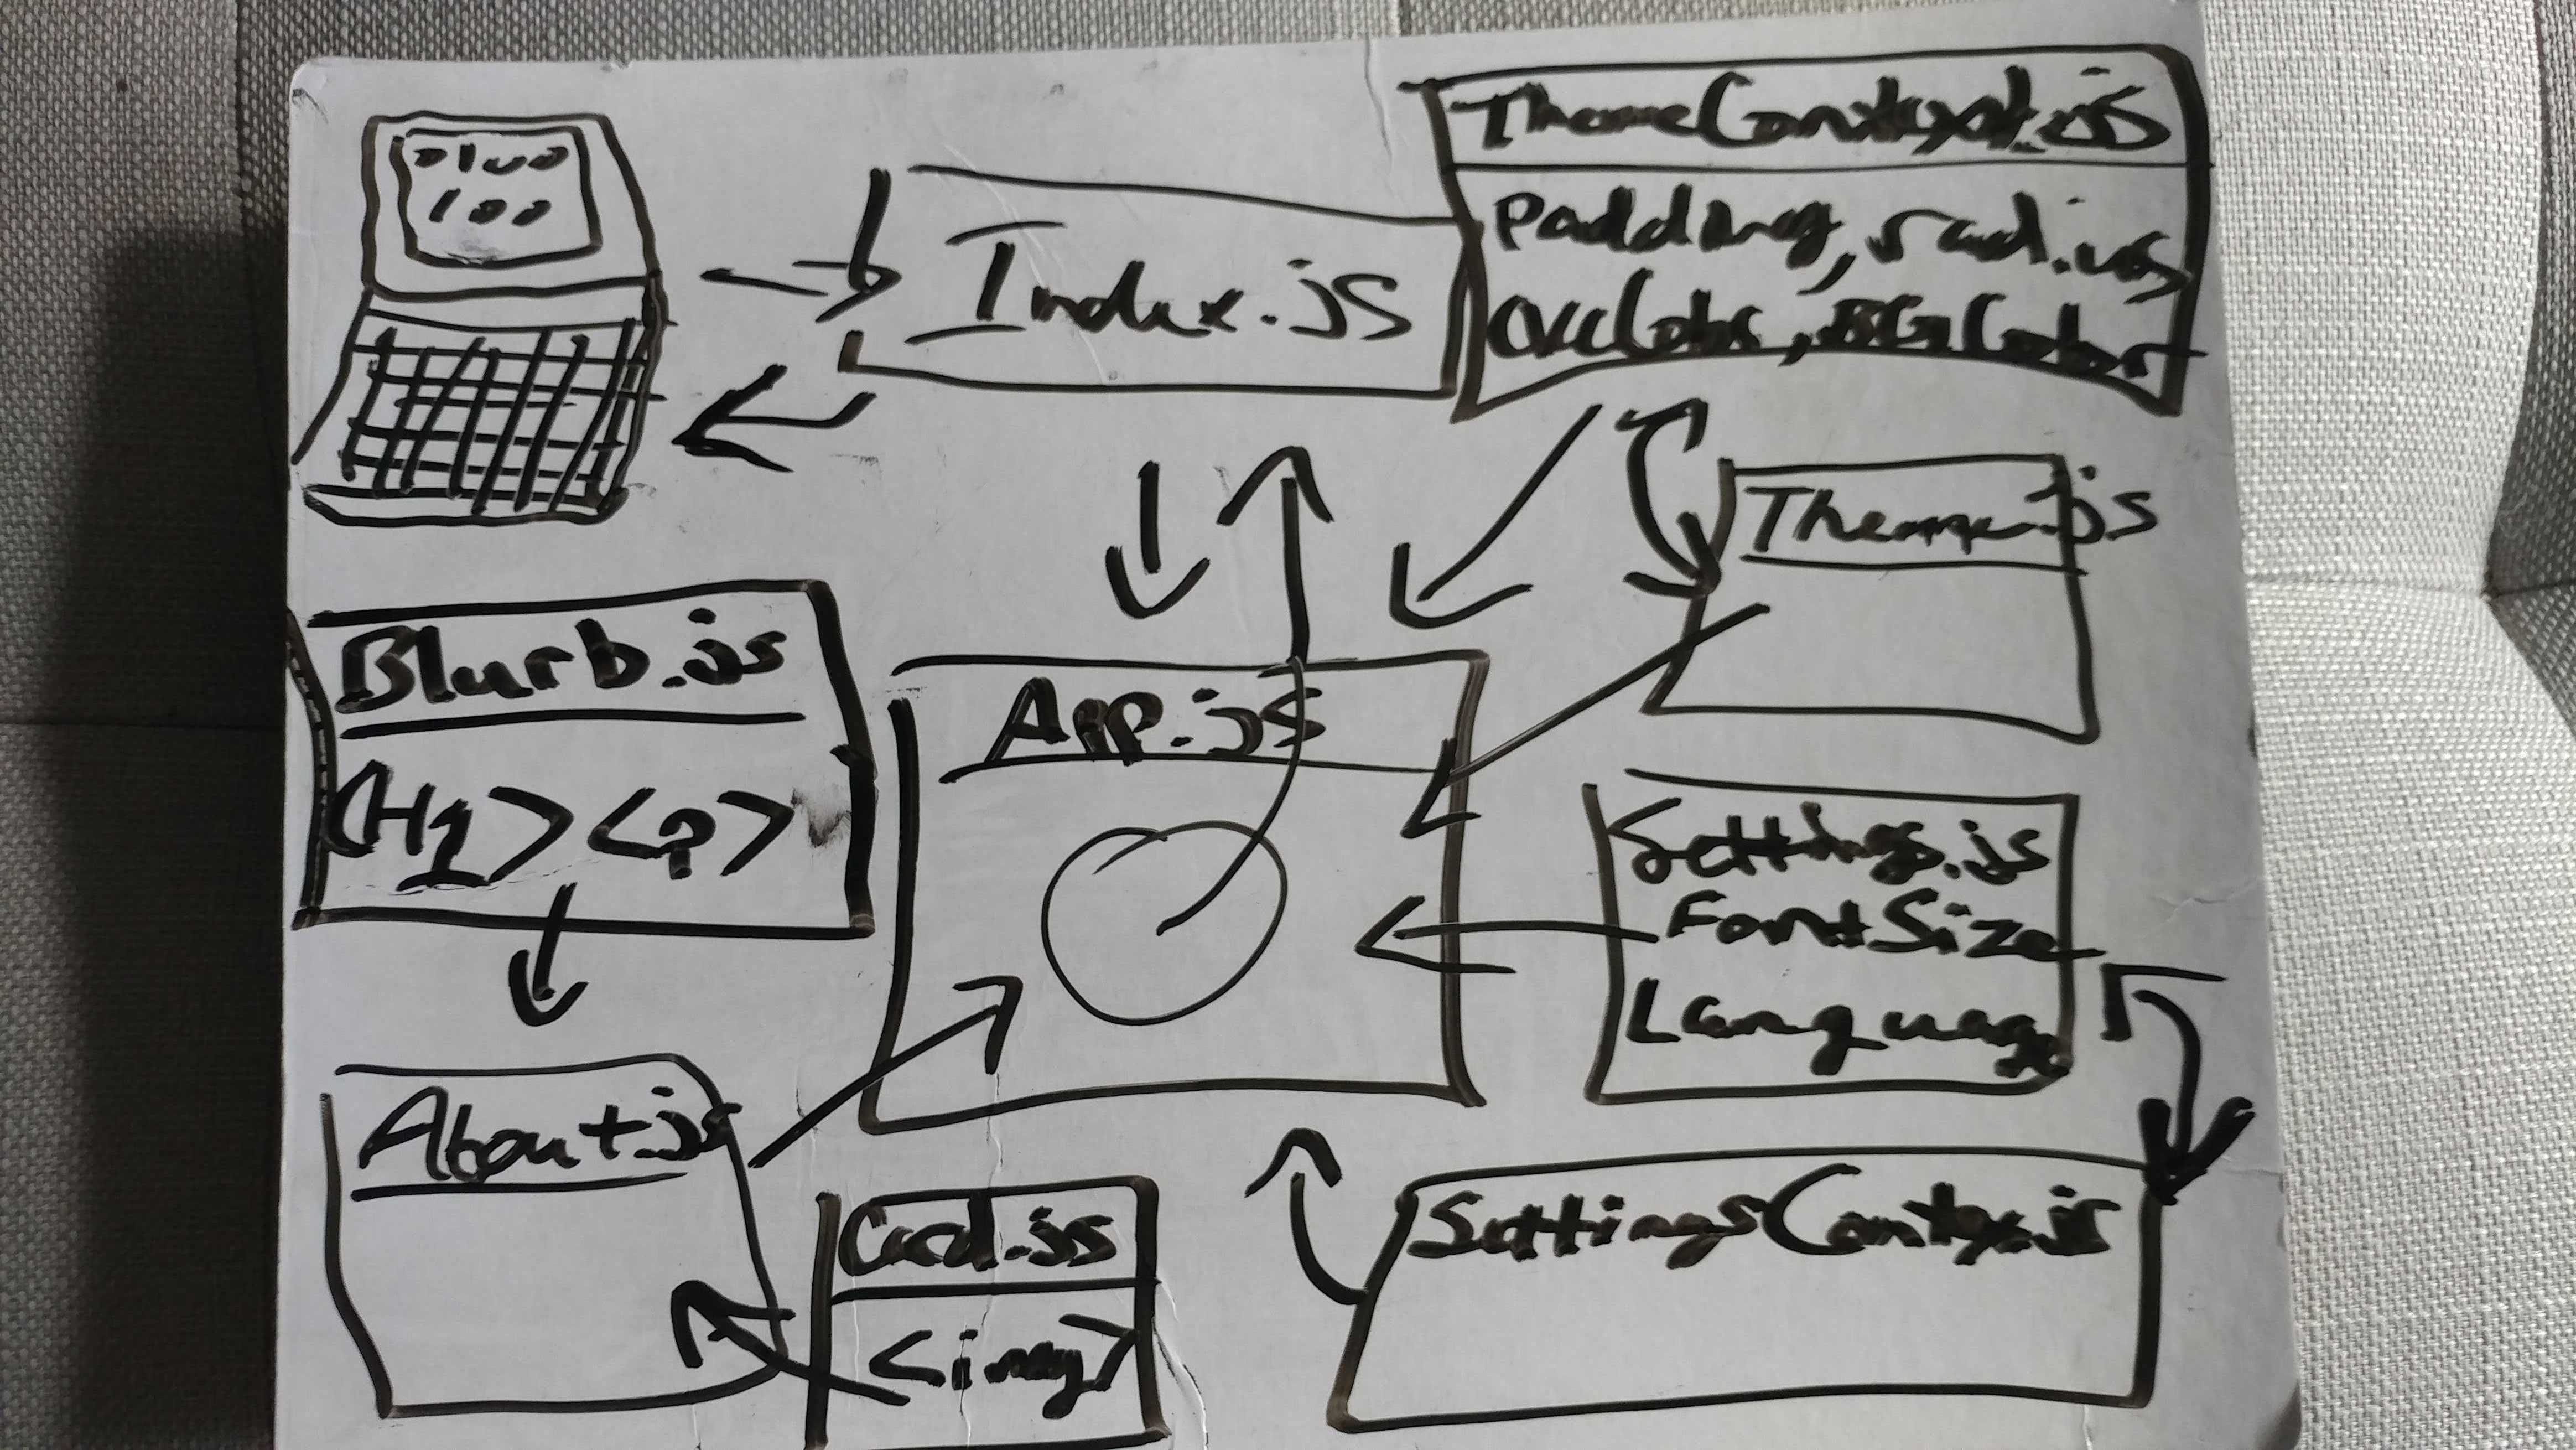 0100
100
Index.js
ThemeContext.js
Padding, radius,
BG Color
Theme.js
Blurb.js
<H1> <P>
App.js
Settings.js
FontSize
Language
About.js
Card.js
<img>
SettingsContex.js